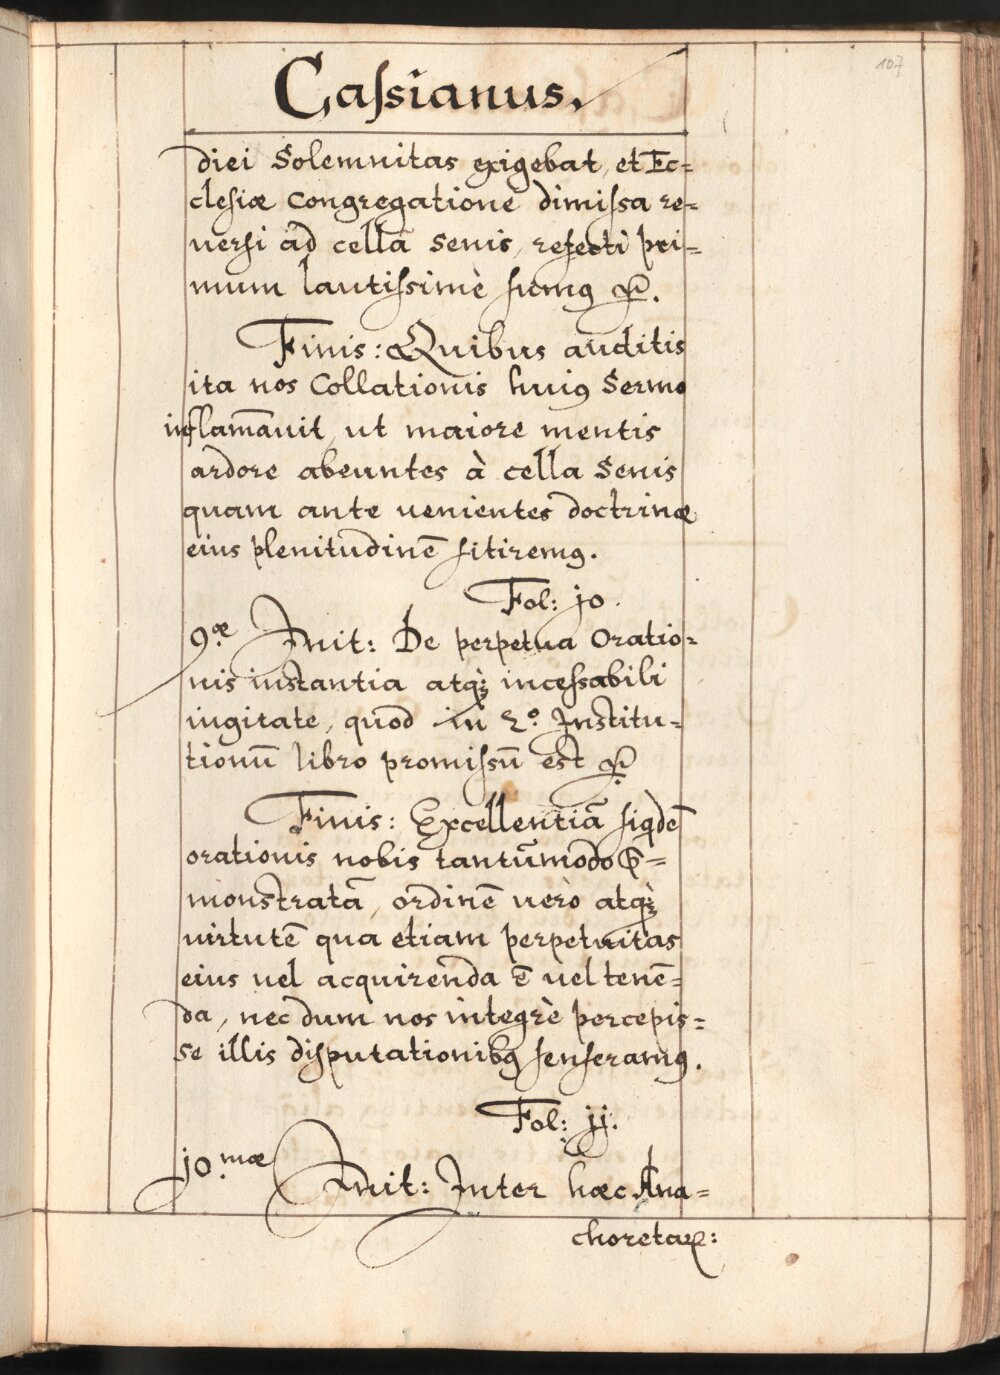 107
Cassianus.
diei Solemnitas exigebat, et Ec=
clesiæ congregatione dimissa re=
uersi ad cellā Senis, refecti pri=
mum lautissimè sumꝯ
Finis: Quibus auditis
ita nos Collationis huiꝯ Sermo
inflam̄auit, ut maiore mentis
ardore abeuntes à cella Senis
quam ante uenientes doctrinæ
eius plenitudinē sitiremꝯ.
Fol: jo.
9.æ Init: De perpetua Oratio=
nis instantia atq́ꝫ incessabili
iugitate, quod in 2.o Institu=
tionū libro promissū est
Finis: Excellentiā siqdē
orationis nobis tantūmodo =
monstratā, ordinē uerò atq́ꝫ
uirtutē qua etiam perpetuitas
eius uel acquirenda ē uel tenē=
da, nec dum nos integrè percepis=
se illis disputationibꝯ senseramꝯ.
Fol: jj.
jo.mæ Init: Inter hæc Ana=
choretaꝝ: